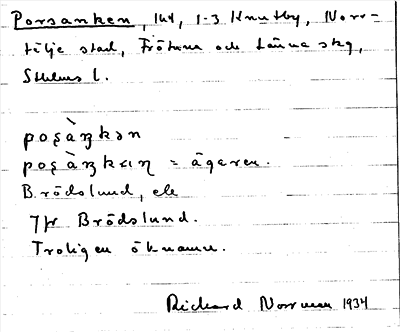 Porsanken, lht, 1-3 Knutby, Norr-
tälje stad, Frötuna och Länna skg,
Sthlms l.
poʂàŋkən
= ägaren.
Brödslund, ele
7/8 Brödslund.
Troligen öknamn.
Rickard Norrman 1934